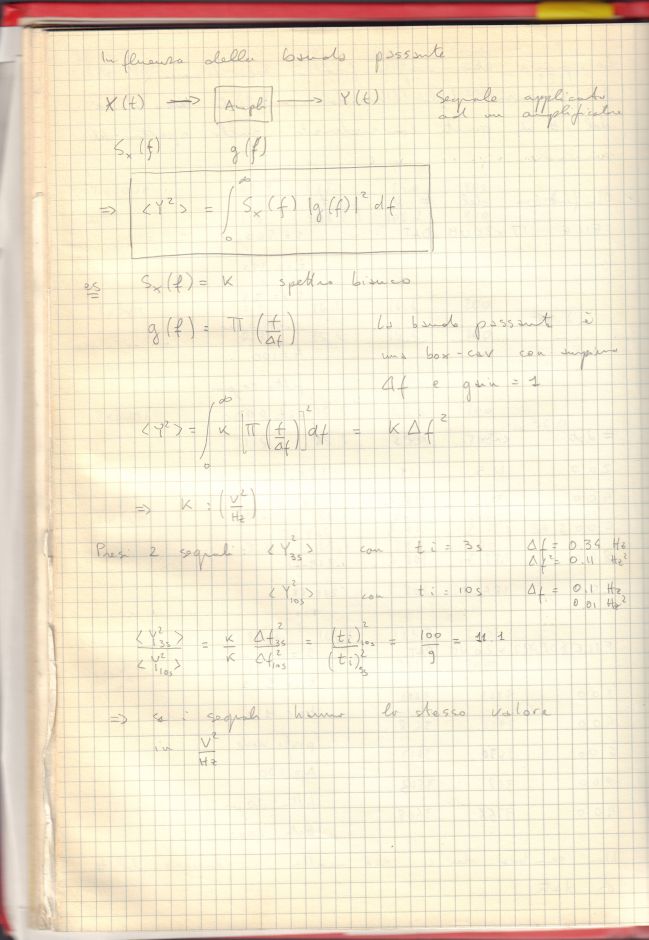 Influenza della banda passante
X(t) → Ampli → Y(t) Segnale applicato
ad un amplificatore
Sx(f) g(f)
⇒ <Y²> = ∫₀^∞ Sx(f) |g(f)|² df
es Sx(f) = K spettro bianco
g(f) = Π (f/Δf) La banda passante è
una box-car con ampiezza
Δf e gain = 1
<Y²> = ∫₀^∞ K [Π (f/Δf)]² df = K Δf²
⇒ K : (V²/Hz)
Presi 2 segnali : <Y²3s> con ti = 3s Δf = 0.34 Hz
Δf² = 0.11 Hz²
<Y²10s> con ti = 10s Δf = 0.1 Hz
0.01 Hz²
<Y²3s>/<Y²10s> = K/K Δf²3s/Δf²10s = (ti)²10s/(ti)²3s = 100/9 = 11.1
⇒ se i segnali hanno lo stesso valore
in V²/Hz